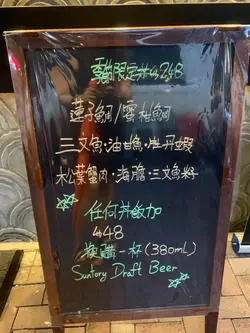 季節限定丼 $248
蓮子鯛/蜜柑鯛
三文魚·油甘魚·牡丹蝦
松葉蟹肉·海膽·三文魚籽
任何丼飯加
$48
換購一杯(380mL)
Suntory Draft Beer